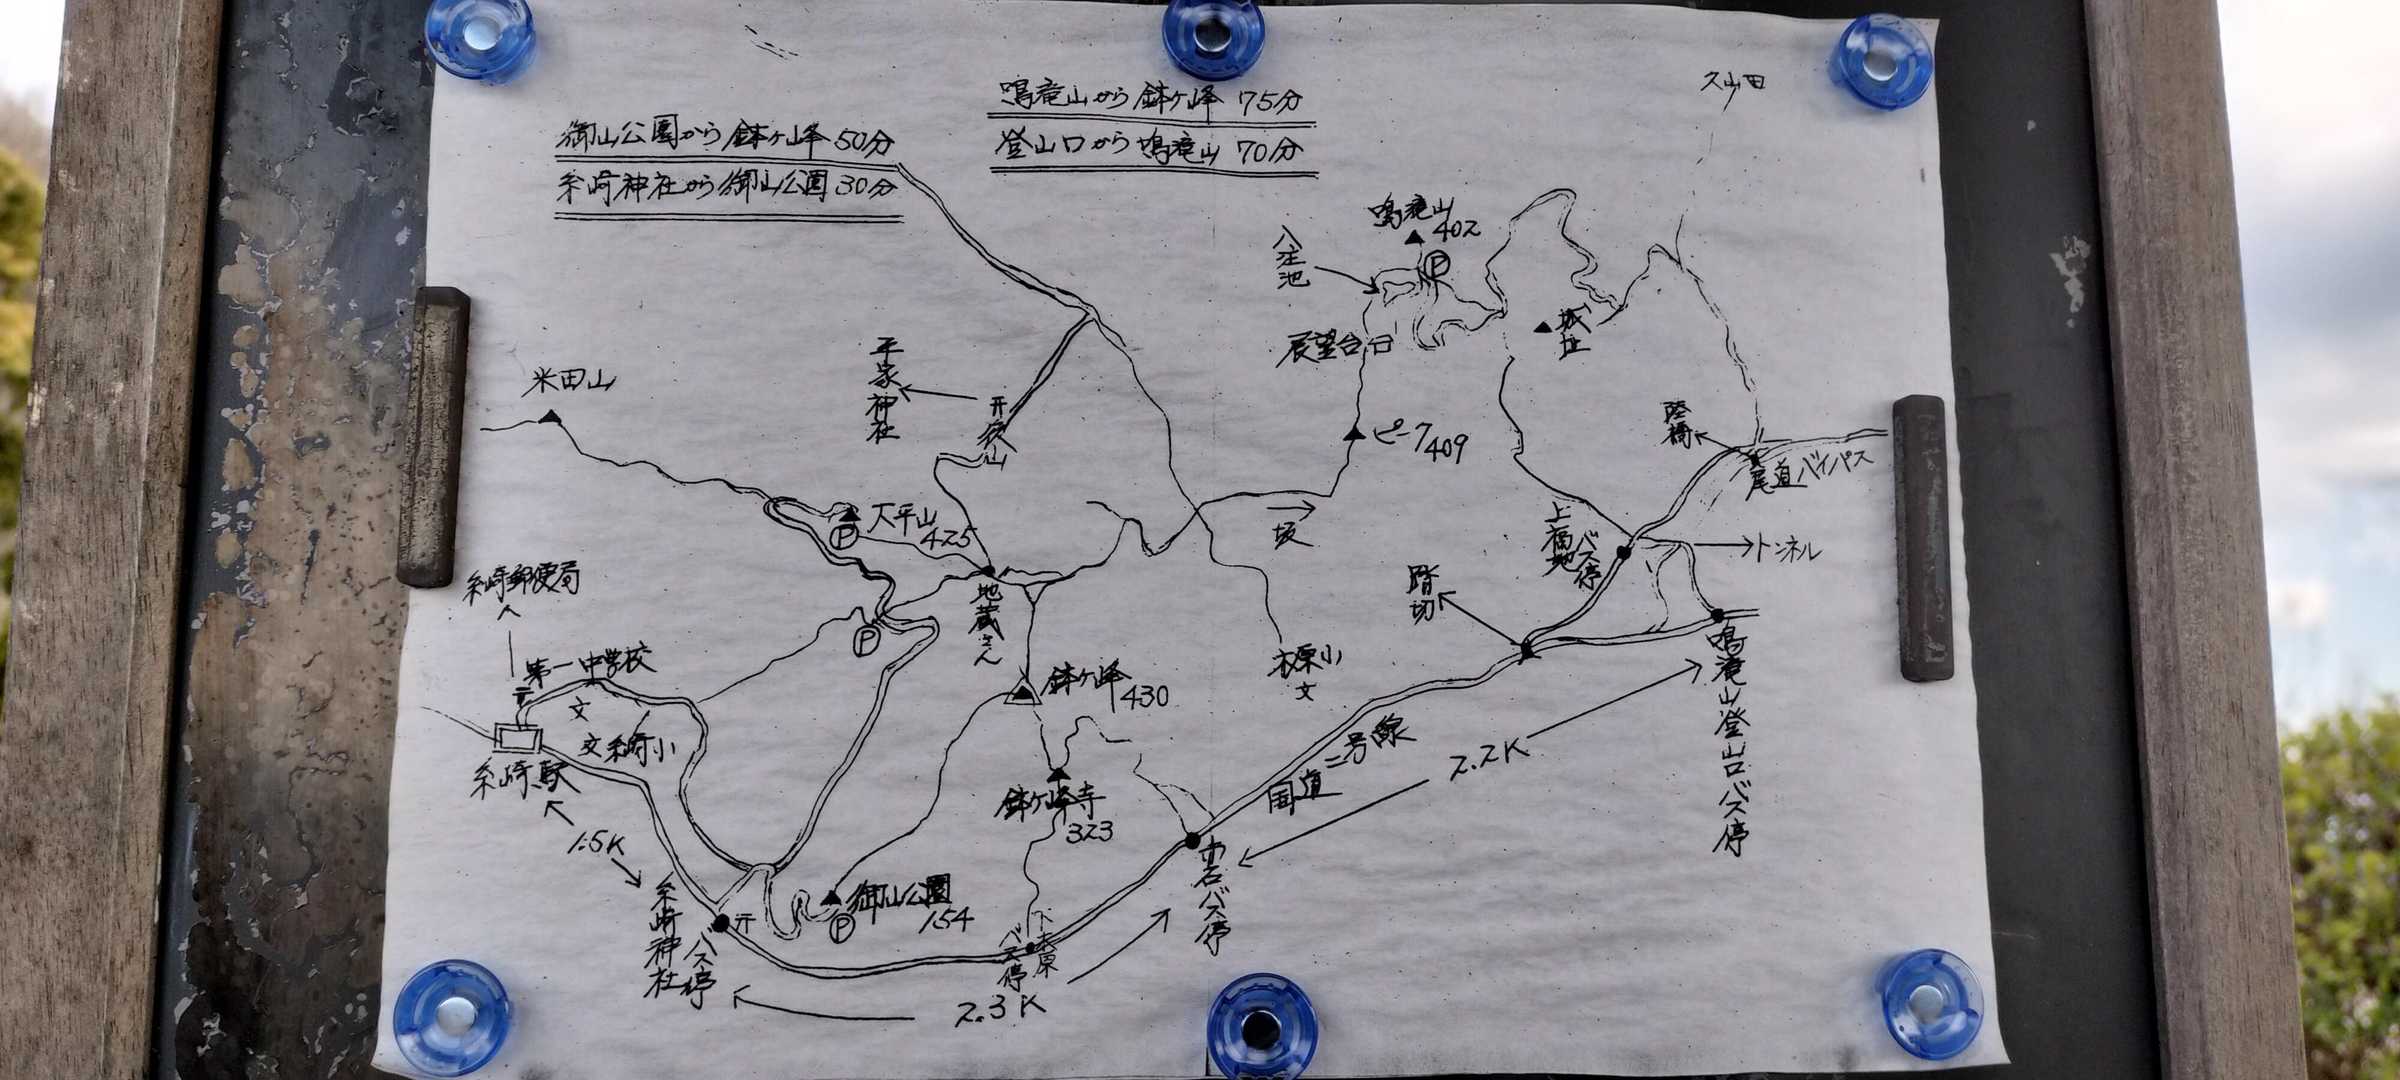 久山田
鳴滝山から鉢ヶ峰 75分
登山口から鳴滝山 70分
御山公園から鉢ヶ峰 50分
糸崎神社から御山公園 30分
鳴滝山
402
P
八注池
展望台
城址
平家神社
米田山
ピーク409
陸橋
尾道バイパス
大平山
425
P
坂
上福地
バス停
トンネル
糸崎郵便局
地蔵さん
踏切
P
第一中学校
文
文 糸崎小
木原小
文
鉢ヶ峰
430
鳴滝山登山口バス停
糸崎駅
国道二号線
2.2K
鉢ヶ峰寺
323
1.5K
御山公園
154
P
糸崎神社
バス停
下木原
バス停
バス停
2.3K